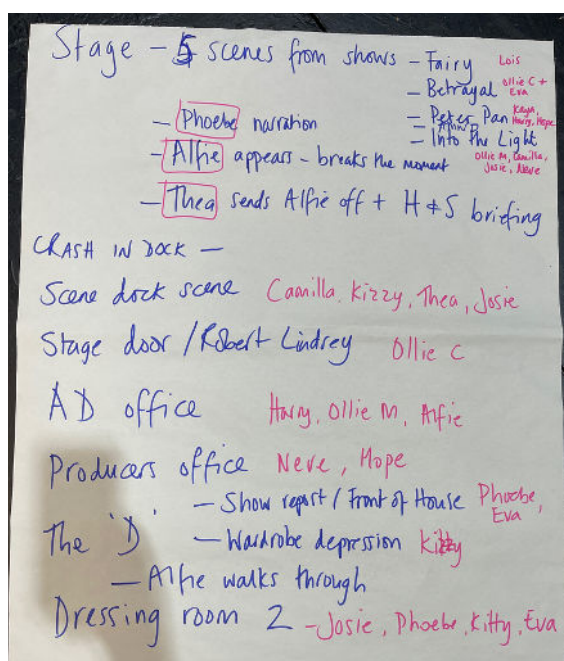 Stage - 5 scenes from shows - Fairy Lois
- Betrayal Ollie C + Eva
- Peter Pan Harry, Hope
- Into the Light
Ollie M, Camilla, Josie, Neve
- Phoebe narration
- Alfie appears - breaks the moment
- Thea sends Alfie off + H & S briefing
CRASH IN DOCK -
Scene dock scene Camilla, Kizzy, Thea, Josie
Stage door / Robert Lindsey Ollie C
AD office Harry, Ollie M, Alfie
Producers office Neve, Hope
- Show report / Front of House Phoebe, Eva
The 'D' - Wardrobe depression
- Alfie walks through
Dressing room 2 - Josie, Phoebe, Kitty, Eva